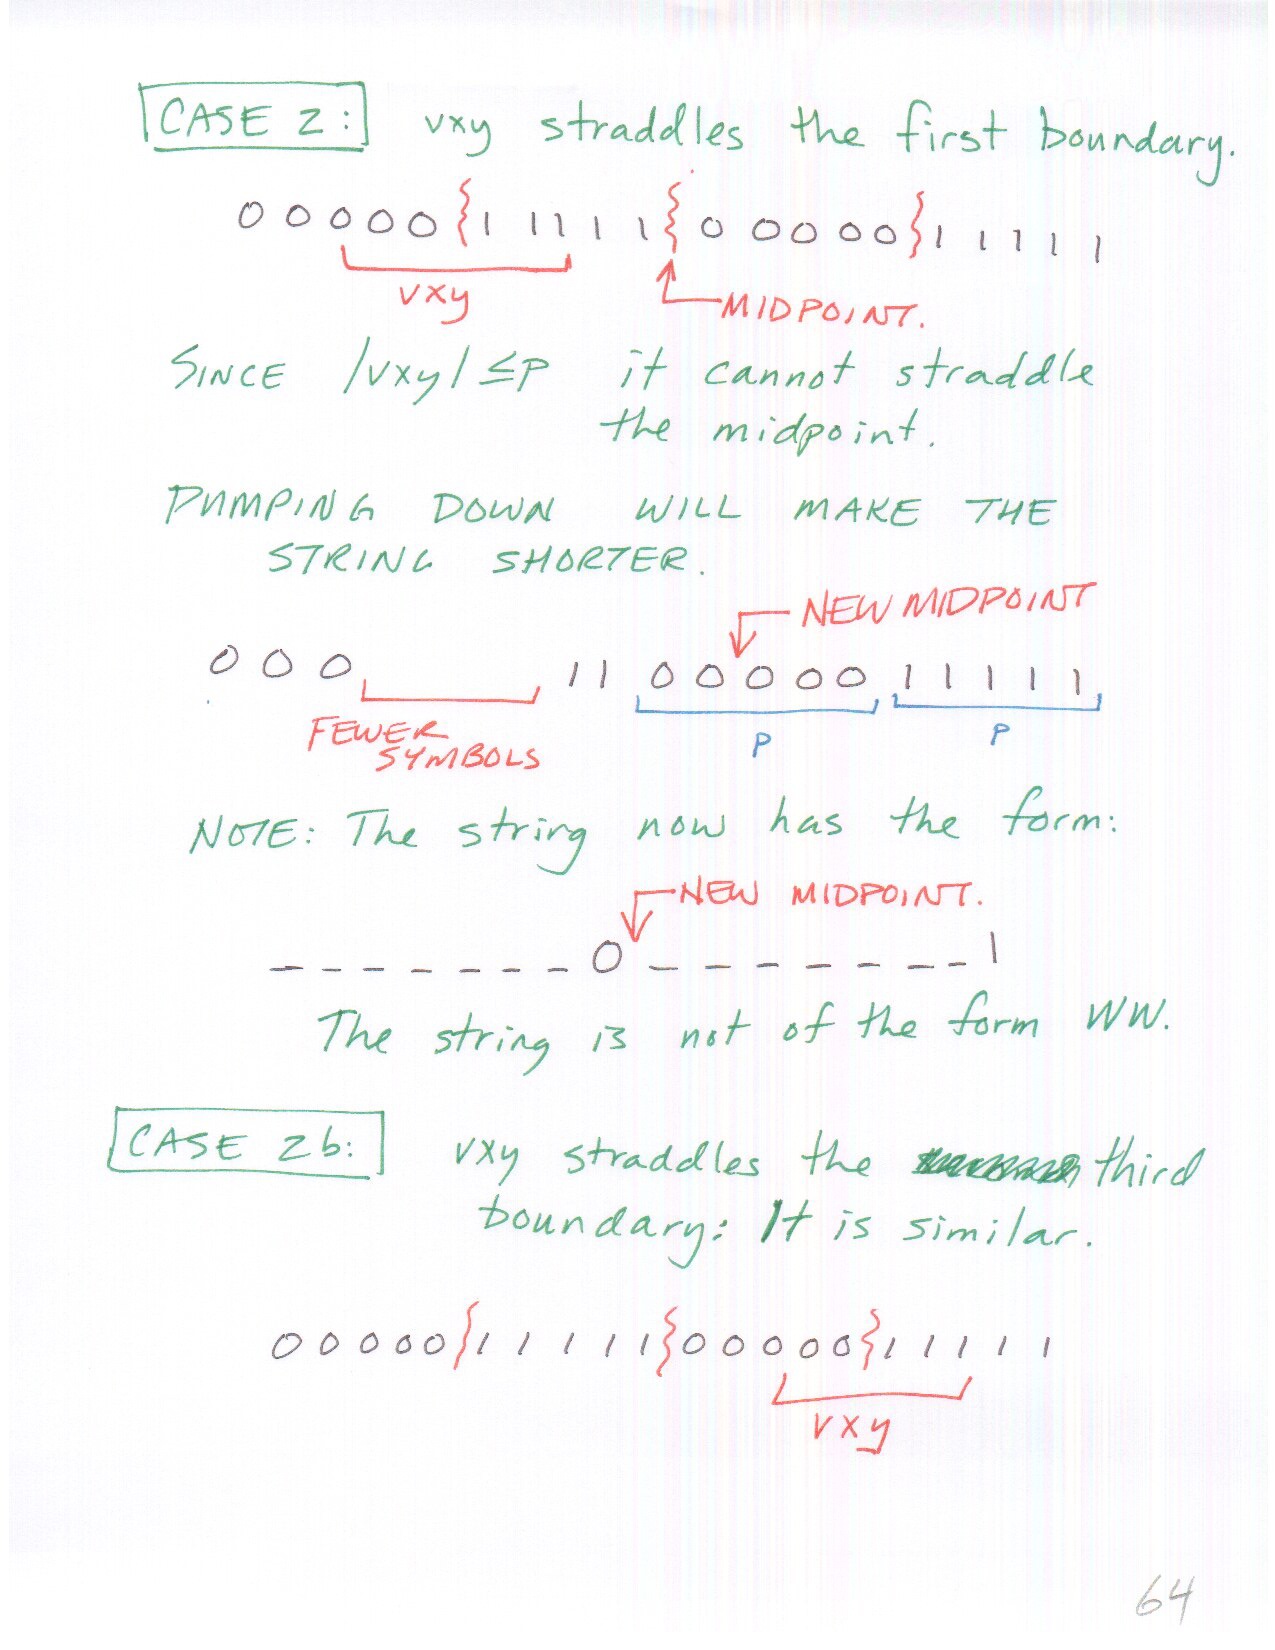 CASE 2: vxy straddles the first boundary.
0 0 0 0 0 { 1 1 1 1 1 { 0 0 0 0 0 { 1 1 1 1 1
vxy
MIDPOINT.
SINCE |vxy| ≤ P it cannot straddle
the midpoint.
PUMPING DOWN WILL MAKE THE
STRING SHORTER.
NEW MIDPOINT
0 0 0 1 1 0 0 0 0 0 1 1 1 1 1
FEWER
SYMBOLS
P P
NOTE: The string now has the form:
NEW MIDPOINT.
_ _ _ _ _ _ _ 0 _ _ _ _ _ _ _ 1
The string is not of the form WW.
CASE 2b: vxy straddles the third
boundary: It is similar.
0 0 0 0 0 { 1 1 1 1 1 { 0 0 0 0 0 { 1 1 1 1 1
vxy
64